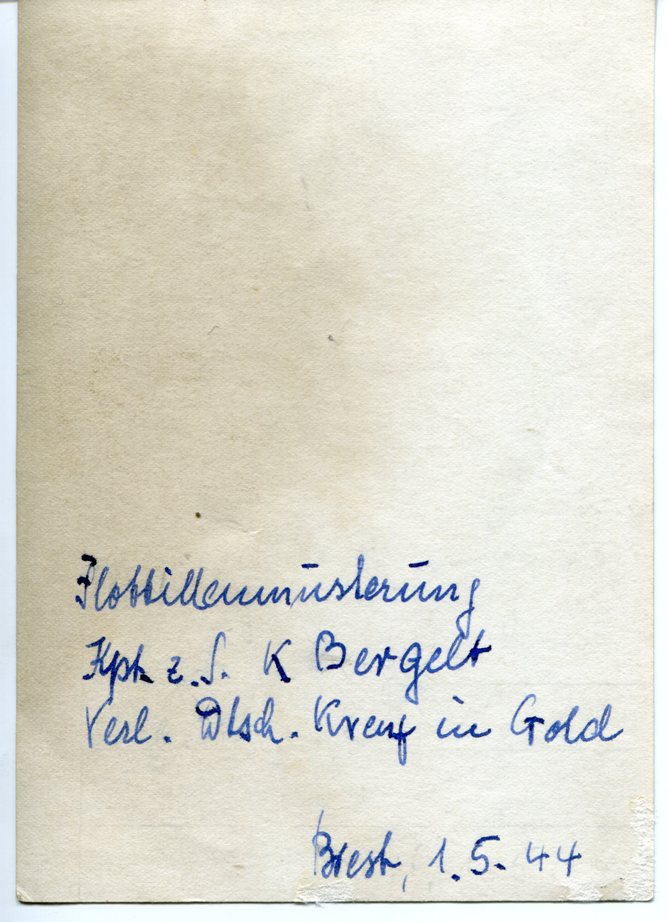 Flottillenmusterung
Kpt. z. S. K Bergelt
Verl. Dtsch. Kreuz in Gold
Brest, 1.5.44